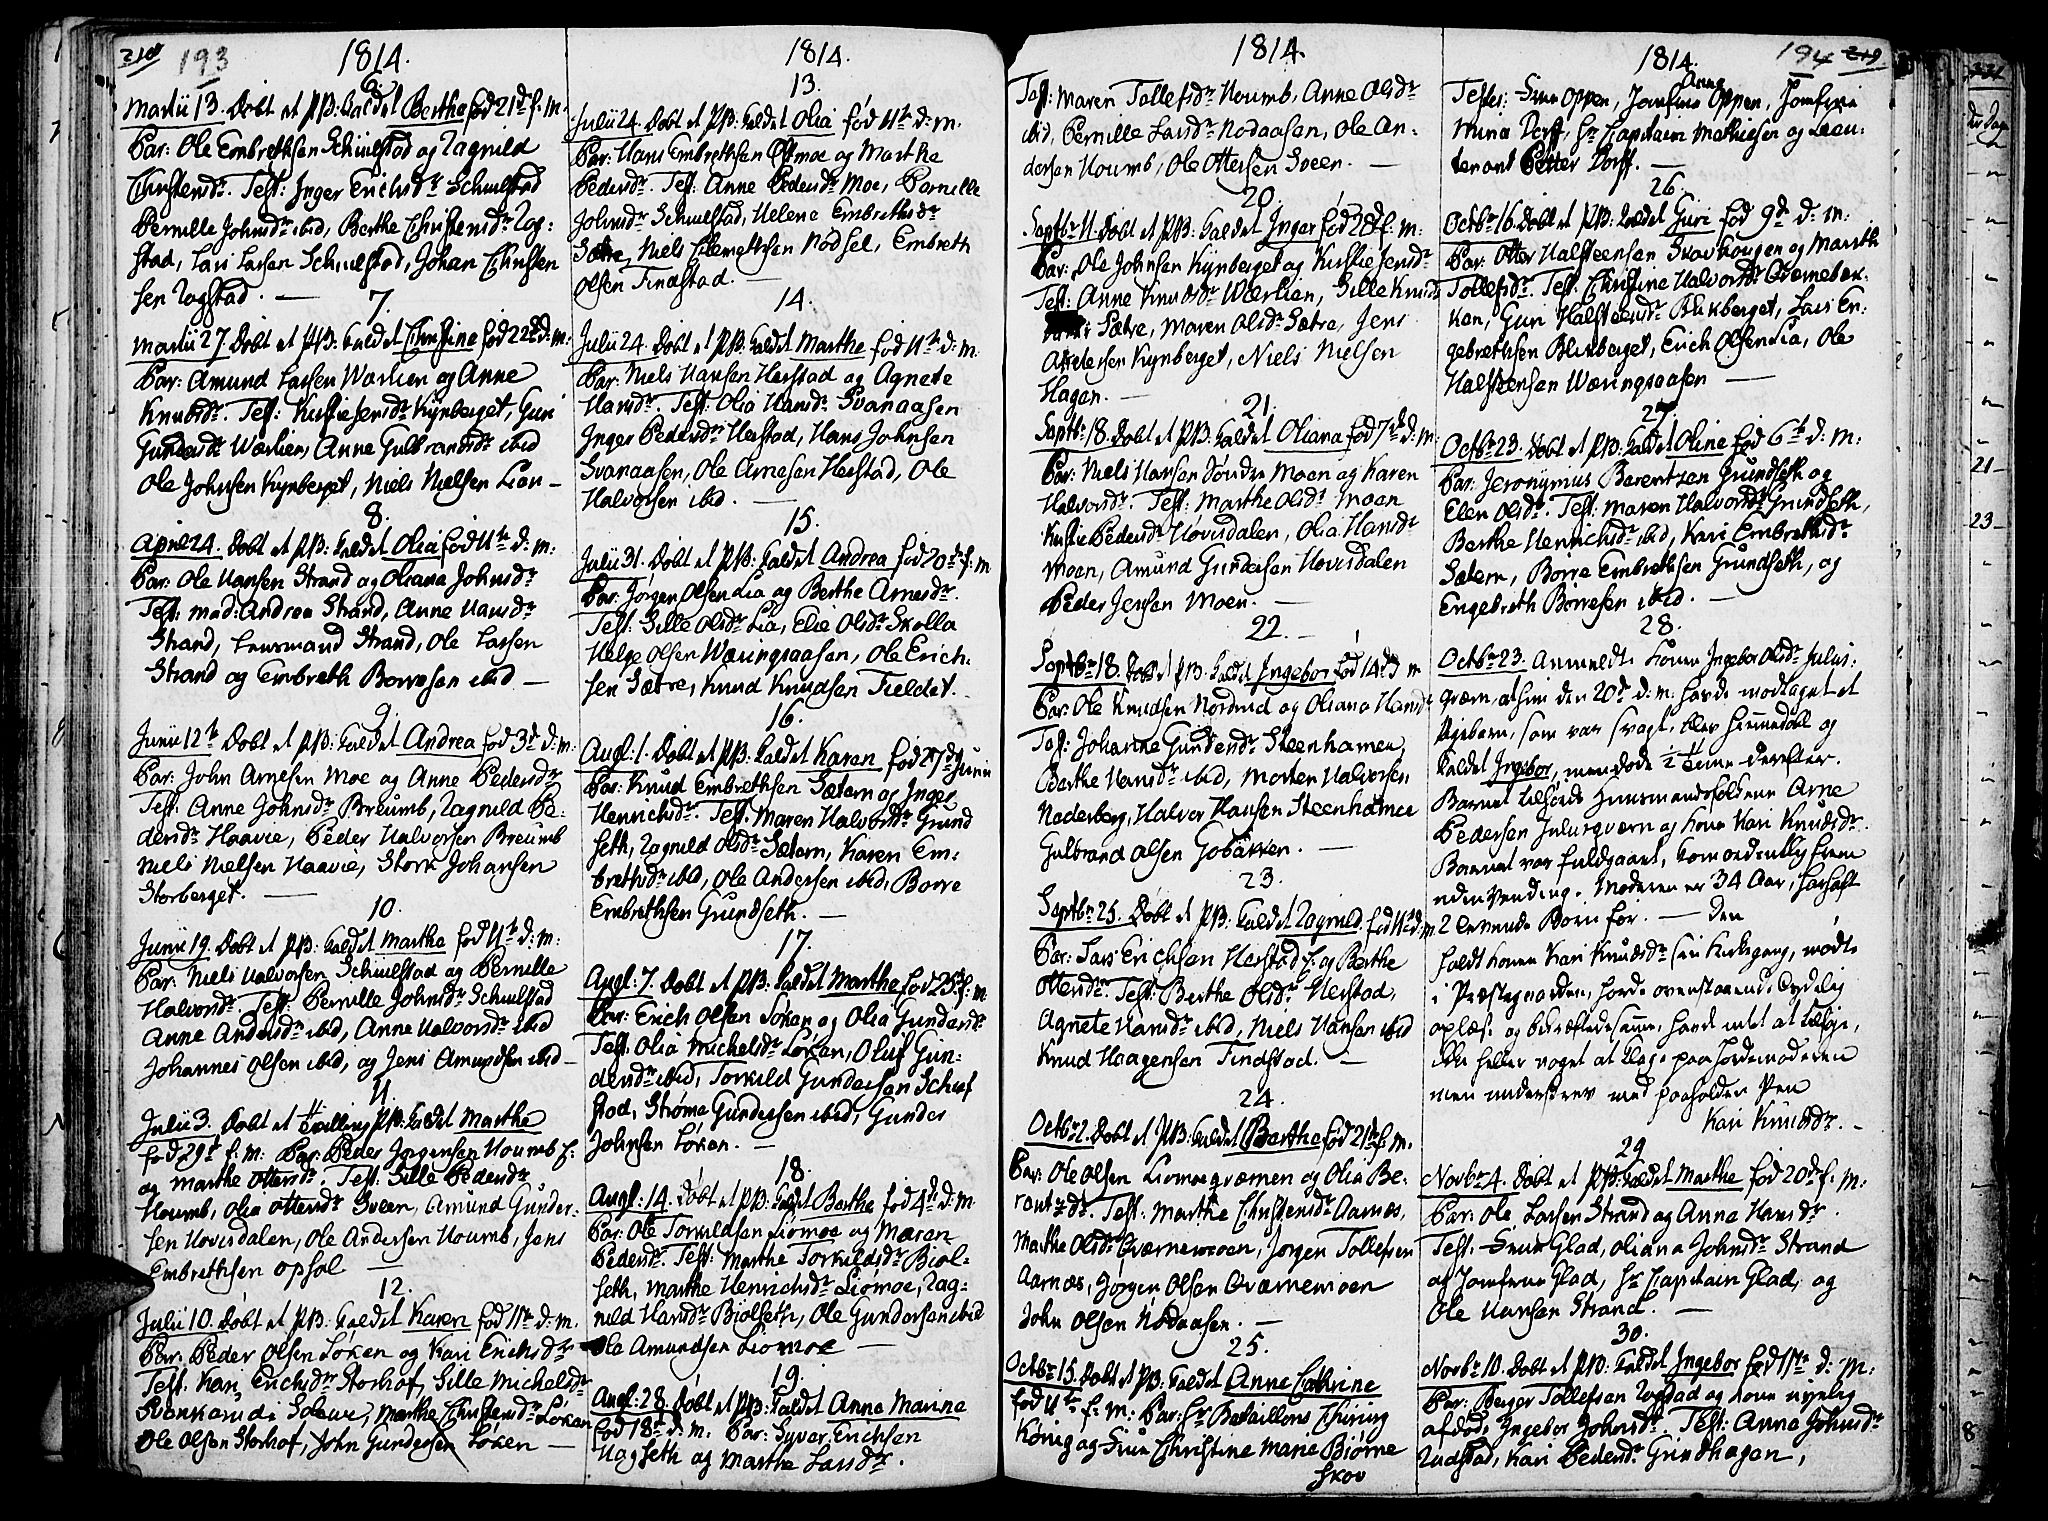 193
1814.
6.
Martii 13. Døbt et PB: kaldet Berthe fød 21d f. M.
Par: Ole Embrethsen Schiulstad og Ragnild
Christensdr. Test: Inger Erichsdr Schiulstad
Pernille Johnsdr ibid, Berthe Christensdr Rog-
stad, Lars Larsen Schiulstad, Johan Christen
sen Rogstad. —
7.
Martii 27. Døbt et PB: kaldet Christine fød 22d d: m:
Par: Amund Larsen Wærlien og Anne
Knudsdr. Test: Kirstie Jensdr Kynberget, Guri
Gundersdr Wærlien, Anne Gulbrandsdr ibid
Ole Johnsen Kynberget, Niels Nielsen Lien —
8.
April 24. Døbt et PB: kaldet Olia fød 11te d: m:
Par: Ole Hansen Strand og Oliana Johnsdr
Test: Mad: Andrea Strand, Anne Hansdr
Strand, Lensmand Strand, Ole Larsen
Strand og Embreth Borresen ibid —
9.
Junii 12te Døbt et PB: kaldet Andrea fød 3d d: m:
Par: John Arnesen Moe og Anne Pedersdr
Test: Anne Johnsdr Breumb, Ragnild Pe-
dersdr Haavie, Peder Halvorsen Breumb
Niels Nielsen Haavie, Stork Johansen
Storberget. —
10.
Junii 19. Døbt et PB: kaldet Marthe fød 11te d: m:
Par: Niels Halvorsen Schiulstad og Pernille
Halvorsdr Test: Pernille Johnsdr Schiulstad
Anne Andersdr ibid, Anne Halvorsdr ibid
Johannes Olsen ibid, og Jens Amundsen ibid —
11.
Julii 3. Døbt et Tvilling PB: kaldet Marthe
fød 29t f. M. Par: Peder Jørgensen Houmb f.
og Marthe Ottersdr. Test: Sille Pedersdr
Houmb, Olia Ottersdr Sveen, Amund Gunder-
sen Hovisdalen, Ole Andersen Houmb, Jens
Embrethsen Opsal —
12.
Julii 10. Døbt et PB: kaldet Karen fød 11te d: m.
Par: Peder Olsen Løken og Kari Erichsdr
Test. Kari Erichsdr Storhof, Sille Michelsdr
Marthe Christensdr Løken
Ole Olsen Storhof, John Gundersen Løken —
1814.
13.
Julii 24. Døbt et PB: kaldet Olia fød 11te d: m.
Par: Hans Embrethsen Østmoe og Marthe
Pedersdr. Test: Anne Pedersdr Moe, Pernille
Johnsdr Schiulstad, Helene Embrethsdr
Sætre, Niels Clemetsen Nødsel, Embreth
Olsen Findstad. —
14.
Julii 24. Døbt et PB: kaldet Marthe fød 11te d: m.
Par: Niels Hansen Herstad og Agnete
Hansdr. Test: Olia Hansdr Svanaasen
Inger Pedersdr Herstad, Hans Johnsen
Svanaasen, Ole Arnesen Herstad, Ole
Halvorsen ibid. —
15.
Julii 31. Døbt et PB: kaldet Andrea fød 20de f: m
Par: Jørgen Olsen Lia og Berthe Arnesdr.
Test: Sille Olsdr Lia, Elie Olsdr Skolla
Helge Olsen Wæringsaasen, Ole Erich-
sen Sætre, Knud Knudsen Fieldet.
16.
Augt: 1. Døbt et PB: kaldet Karen fød 27d Junii
Par: Knud Embrethsen Sætern og Inger
Henrichsdr. Test. Maren Halvorsdr Grund
seth, Ragnild Olsdr Sætern, Karen Em-
brethsdr ibid, Ole Andersen ibid, Borre
Embrethsen Grundseth. —
17.
Augt: 7. Døbt et PB: kaldet Marthe fød 25d f: m
Par: Erich Olsen Løken og Olia Gundersdr
Test: Olia Michelsdr Løken, Oluf Gun-
dersdr ibid, Torkild Gundersen Schiul
stad, Strøme Gundersen ibid, Gunder
Johnsen Løken. —
18.
Augt: 14. Døbt et PB: kaldet Berthe fød 4de d: M.
Par: Ole Torkildsen Liømoe og Maren
Pedersdr. Test: Marthe Torkildsdr Biøl-
seth, Marthe Henrichsdr Liømoe, Rag-
nild Hansdr Biølseth, Ole Gundersen ibid
Ole Amundsen Liømoe —
19.
Augt: 28. Døbt et PB: kaldet Anne Marine
fød 18de d: m. Par: Syver Erichsen
Hagseth og Marthe Larsdr.
1814.
Test: Maren Tollefsdr Houmb, Anne Olsdr
ibid, Pernille Larsdr Nodaasen, Ole An-
dersen Houmb, Ole Ottersen Sveen. —
20.
Septbr 11. Døbt et PB: kaldet Inger fød 28d f: m:
Par: Ole Johnsen Kynberget og Kirstie Jensdr
Test: Anne Knudsdr Wærlien, Sille Knuds
Sætre, Maren Olsdr Sætre, Jens
Kynberget, Niels Nielsen
Hagen. —
21.
Septbr 18. Døbt et PB: kaldet Oliana fød 7de d: m.
Par: Niels Hansen Søndre Moen og Karen
Halvorsdr. Test: Marthe Olsdr Moen
Kirstie Pedersdr Hovisdalen, Olia Hansdr
Moen, Amund Gundersen Hovisdalen
Peder Jensen Moen. —
22.
Septbr 18. Døbt et PB: kaldet Ingebor fød 14d d m
Par: Ole Knudsen Nordrud og Oliana Hansdr
Test: Johanne Gundersdr Steenhamer,
Berthe Hansdr ibid, Morten Halvorsen
Noderberg, Halvor Hansen Steenhamer
Gulbrand Olsen Gobakken. —
23.
Septbr 25. Døbt et PB: kaldet Ragnild fød 11te d: m.
Par: Lars Erichsen Herstad f. og Berthe
Ottersdr Test: Berthe Olsdr Herstad,
Agnete Hansdr ibid, Niels Hansen ibid
Knud Haagensen Findstad. —
24.
Octbr 2. Døbt et PB: kaldet Berthe fød 21de f. m.
Par: Ole Olsen Liomoqværnen og Olia Be-
rentsdr. Test: Marthe Christensdr Aarnæs,
Marthe Olsdr Qværnemoen, Jørgen Tollefsen
Aarnæs, Jørgen Olsen Qværnemoen
John Olsen Nodaasen. —
25.
Octbr 15. Døbt et PB: kaldet Anne Cathrine
fød 11te f. m: Par: Hr Batallions Chirurg
König og Frue Christine Marie Biørne
skov
1814.
194
Testes: Frue Oppen, Jomfrue Anne Oppen, Jomfrue
Mina Dorff, Hr Capitain Mathiesen og Lieu-
tenant Petter Dorff. —
26.
Octbr 16. Døbt et PB: kaldet Guri fød 9d d: m:
Par: Otter Halsteensen Skavhougen og Marith
Tollefsdr. Test. Christine Halvorsdr Qvernebæk-
ken, Guri Halsteensdr Blikberget, Lars En-
gebrethsen Blikberget, Erich Olsen Lia, Ole
Halsteensen Wæringsaasen —
27.
Octbr 23. Døbt et PB: kaldet Oline fød 6te d: m:
Par: Jeronymus Berentzen Grundseth og
Elen Olsdr. Test: Maren Halvorsdr Grundseth,
Berthe Henrichsdr ibid, Kari Embrethsdr
Sætern, Borre Embrethsen Grundseth, og
Engebreth Borresen ibid. —
28.
Octbr 23. Anmeldte Konen Ingebor Olsdr Julus-
qværn, at hun den 20d d: m: havde modtaget et
Pigebarn, som var svagt, blev hiemmedøbt og
kaldet Ingebor, men døde ½ Time derefter.
Barnet tilhørde Huusmandsfolkene Arne
Pedersen Julusqværn og Kone Kari Knudsdr.
Barnet var fuldgaaet, kom ordentlig frem
uden Vending. Moderen er 34 Aar, har havt
2 levende Børn før. — Den
holdt Konen Kari Knudsdr sin Kirkegang, mødte
i Præstegaarden, hørde ovenstaaende tydelig
oplæse og bekræftede samme, havde intet at tilføje,
ikke heller noget at klage paa Jordemoderen
men underskrev med paaholden Pen
Kari Knudsdr. —
29
Novbr 4. Døbt et PB: kaldet Marthe fød 20de f. m:
Par: Ole Larsen Strand og Anne Hansdr.
Test: Frue Glad, Oliana Johnsdr Strand
og Jomfrue Glad, Hr Capitain Glad, og
Ole Hansen Strand. —
30.
Novbr 10. Døbt et PB: kaldet Ingebor fød 11te d: m:
Par: Berger Tollefsen Rogstad og Kone nyelig
afdøde Ingebor Johnsdr. Test: Anne Johnsdr
Rudstad, Kari Pedersdr Grindhagen,
21
23
8